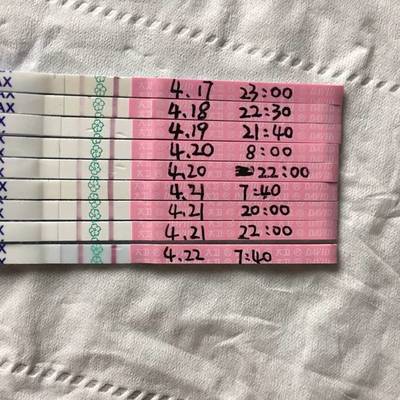 AX 4.17 23:00
AX 4.18 22:30
AX 4.19 21:40
AX 4.20 8:00
AX 4.20 22:00
AX 4.21 7:40
AX 4.21 20:00
AX 4.21 22:00
4.22 7:40